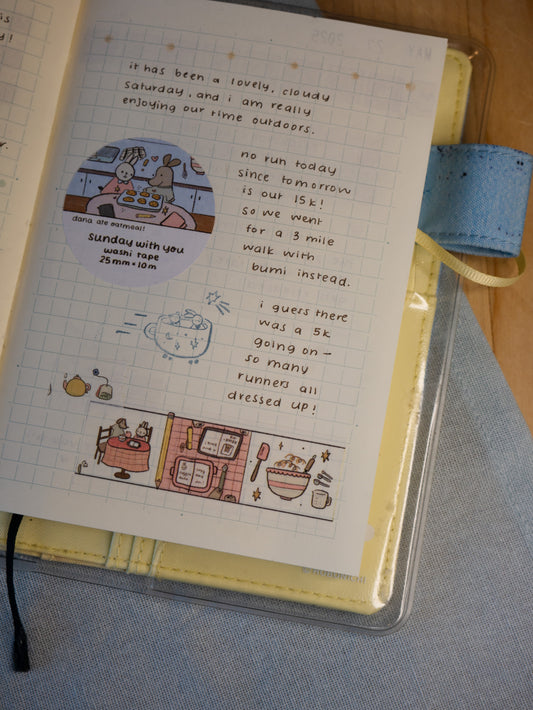 is
y!
it has been a lovely, cloudy
saturday, and i am really
enjoying our time outdoors.
no run today
since tomorrow
is our 15k!
so we went
for a 3 mile
walk with
bumi instead.
dana ate oatmeal!
sunday with you
washi tape
25mm × 10m
i guess there
was a 5k
going on –
so many
runners all
dressed up!